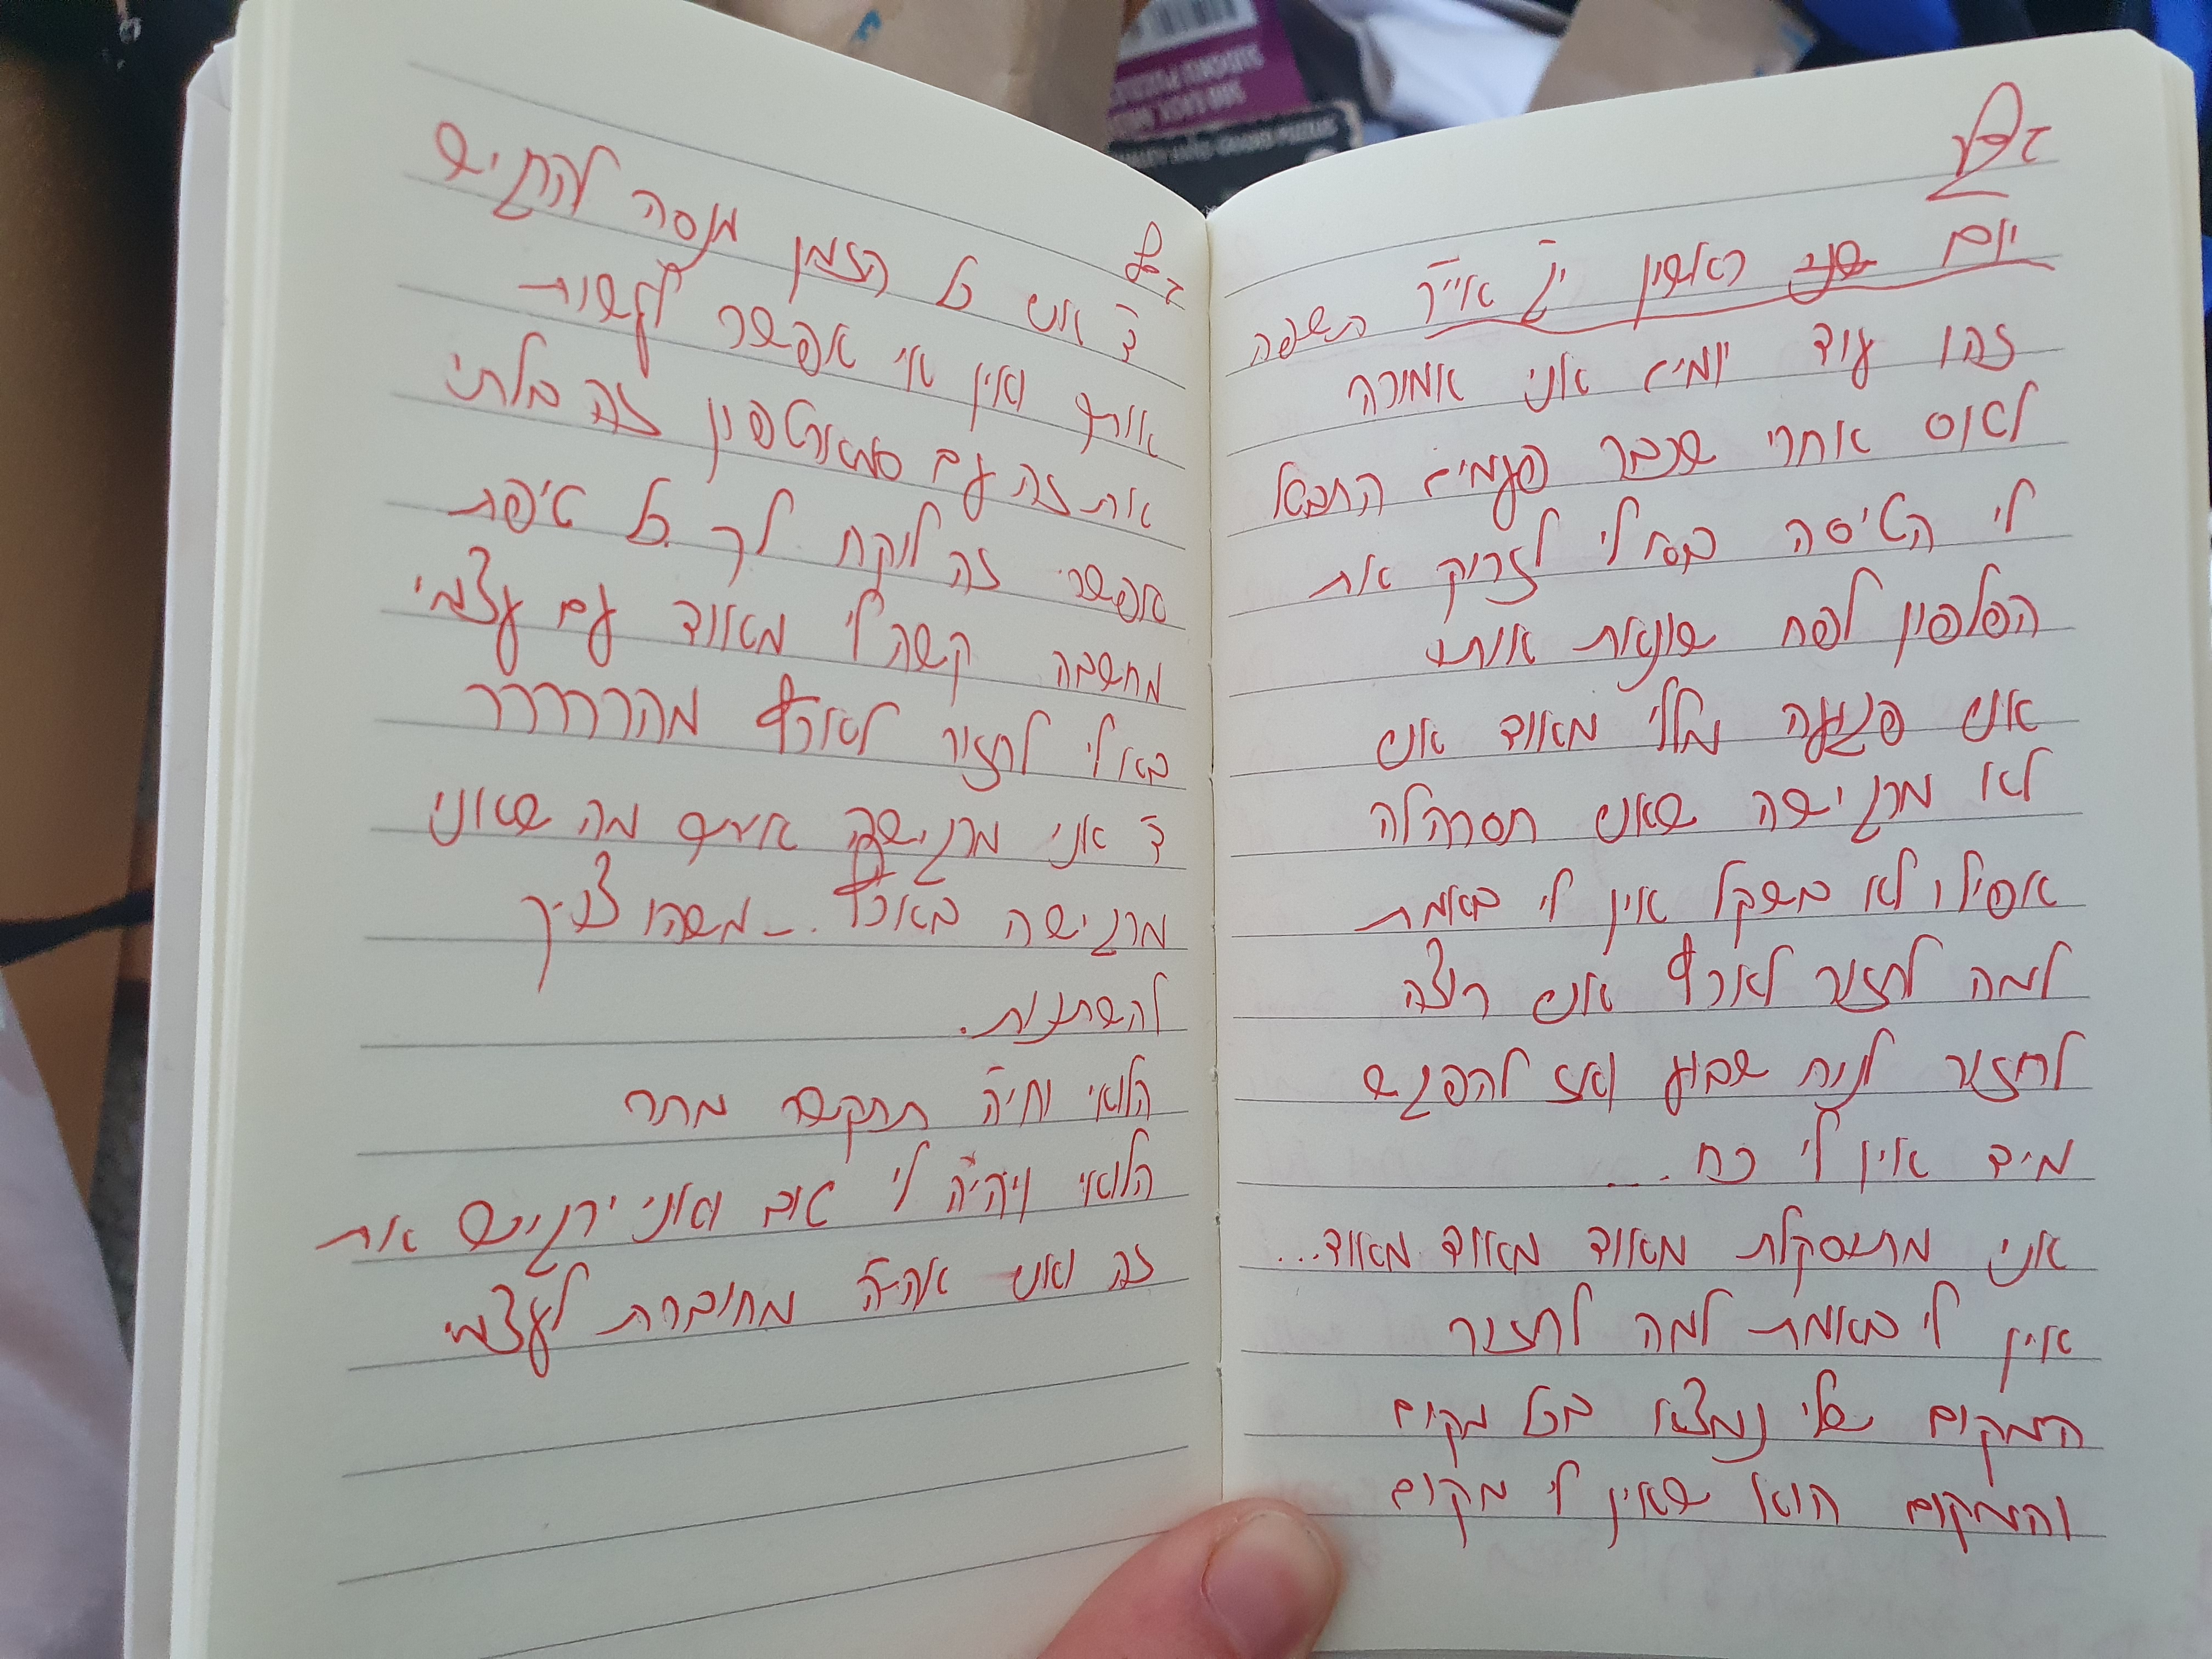 בס"ד
יום שני ראשון י"ג אייר תשפה
זהו עוד יומיים אני אמורה
לטוס אחרי שכבר פעמיים התבטל
לי הטיסה בסוף לי לזרוק את
הפלפון לפח שונאת אותו
אני פגועה מלי מאוד אני
לא מרגישה שאני חסרה לה
אפילו לא בשקל אין לי באמת
למה לחזור לארץ אני רוצה
לחזור לנוח שבוע ואז להפגש
מיד אין לי כח....
אני מתוסכלת מאוד מאוד מאוד...
אין לי באמת למה לחזור
המקום שלי נמצא בכל מקום
והמקום הוא שאין לי מקום
בס"ד
כל הזמן מנסה להתיש
אותך ואין אי אפשר לעשות
את זה עם סמארטפון זה בלתי
אפשרי זה לוקח לך כל טיפת
מחשבה קשה לי מאוד עם עצמי
בא לי לחזור לארץ מהרררררר
כי אני מרגישה אותך מה שאני
מרגישה בארץ... משהו צריך
להשתנות.
הלואי וחיה תתקשר מחר
הלואי ויהיה לי טוב ואני ירגיש את
זה ואני אהיה מחוברת לעצמי